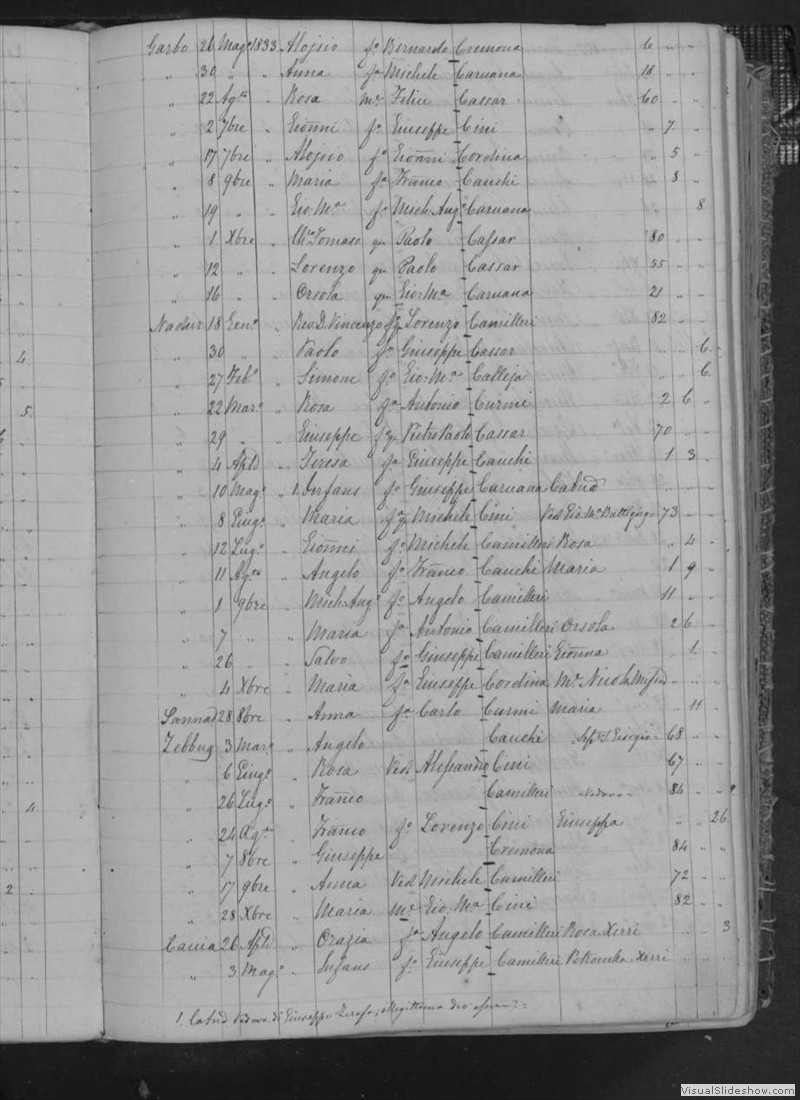 Garbo 26 Magº 1833 Aloisio fº Bernardo Cremona 6 " "
" 30 " " Anna fª Michele Caruana 18 " "
" 22 Agto " Rosa Mº Felice Cassar 60 " "
" 2 7bre " Gioñni fº Giuseppe Cini " 7 "
" 17 7bre " Aloisio fº Gioñni Cordina " 5 "
" 8 9bre " Maria fª Franco Cauchi " 8 "
" 19 " " Gio: Mª fº Mich: Angº Caruana 8
" 1 Xbre " Tomaso qm Paolo Cassar 80 " "
" 12 " " Lorenzo qm Paolo Cassar 55 " "
" 16 " " Orsola qm Gio: Mª Caruana 21 " "
Nadur 18 Genº " Rev. D. Vincenzo Lorenzo Camilleri 82 " "
" 30 " " Paolo fº Giuseppe Cassar " " 6
" 27 Febº " Simone fº Gio: Mª Calleja " " 6
" 22 Marº " Rosa fª Antonio Curmi 2 6 "
" 29 " " Giuseppe Pietro Paolo Cassar 70 " "
" 4 Aple " Teresa fª Giuseppe Cauchi 1 3 "
" 10 Magº " 1. Infans fº Giuseppe Caruana " " "
" 8 Giugº " Maria Michele Cini Vedª Gio: Mª 73 " "
" 12 Lugº " Gioñni fº Michele Camilleri Rosa " 4 "
" 11 Agto " Angelo fº Franco Cauchi Maria 1 9 "
" 1 9bre " Mich: Angº fº Angelo Camilleri 11 " "
" 7 " " Maria fª Antonio Camilleri Orsola 2 6 "
" 26 " " Salvo fº Giuseppe Camilleri Gioñna " 1 "
" 4 Xbre " Maria fª Giuseppe Cordina Mº " " "
Sannat 28 8bre " Anna fª Carlo Curmi Maria " 11 "
Zebbug 3 Marº " Angelo Cauchi Giorgio 68 " "
" 6 Giugº " Rosa Vedª Alessandro Cini 67 " "
" 26 Lugº " Franco Camilleri Vedovo 84 " "
" 24 Agto " Franco fº Lorenzo Cini Giuseppa " " 26
" 7 8bre " Giuseppe Cremona 84 " "
" 17 9bre " Anna Vedª Michele Camilleri 72 " "
" 28 Xbre " Maria Mº Gio: Mª Cini 82 " "
Caccia 26 Aple " Orazia fª Angelo Camilleri Rosa Xerri " " 3
" 3 Magº " Infans fº Giuseppe Camilleri Petronilla Xerri " " "
1. Vedova di Giuseppe illegittima
4
5
4
2
VisualSlideshow.com